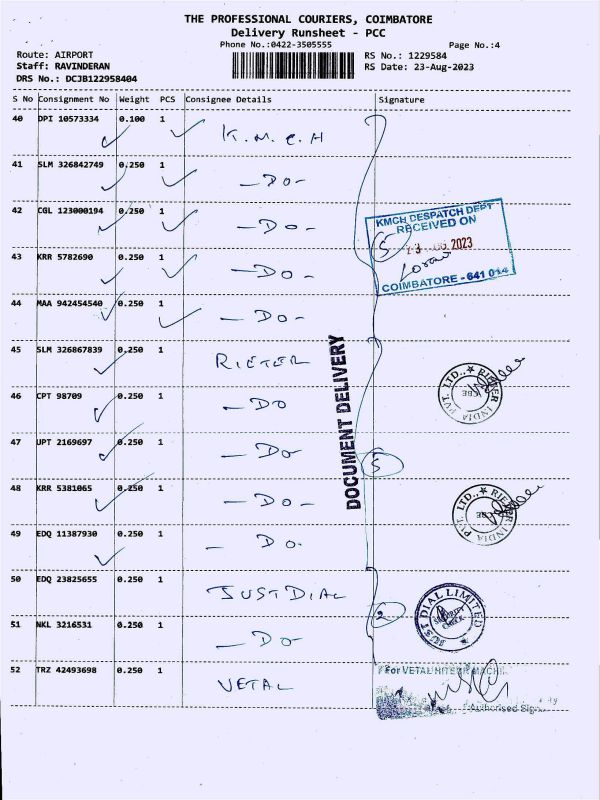 THE PROFESSIONAL COURIERS, COIMBATORE
Delivery Runsheet - PCC
Phone No.:0422-3505555 Page No.:4
Route: AIRPORT RS No.: 1229584
Staff: RAVINDERAN RS Date: 23-Aug-2023
DRS No.: DCJB122958404
S No Consignment No Weight PCS Consignee Details Signature
40 DPI 10573334 0.100 1 K.M.C.H
41 SLM 326842749 0.250 1 -DO-
42 CGL 123000194 0.250 1 -DO-
KMCH DESPATCH DEPT
RECEIVED ON
2023
COIMBATORE - 641 014
5
43 KRR 5782690 0.250 1 -DO-
44 MAA 942454540 0.250 1 -DO-
DOCUMENT DELIVERY
45 SLM 326867839 0.250 1 RIETER
RIETER INDIA PVT. LTD.,
46 CPT 98709 0.250 1 -DO
47 UPT 2169697 0.250 1 -DO
5
48 KRR 5381065 0.250 1 -DO-
RIETER INDIA PVT. LTD.,
49 EDQ 11387930 0.250 1 - DO.
50 EDQ 23825655 0.250 1 JUSTDIAL
2
JUST DIAL LIMITED
SECURITY
CHECK
51 NKL 3216531 0.250 1 -DO
52 TRZ 42493698 0.250 1 VETAL
For VETAL HITECH MACHI
Authorised Sig